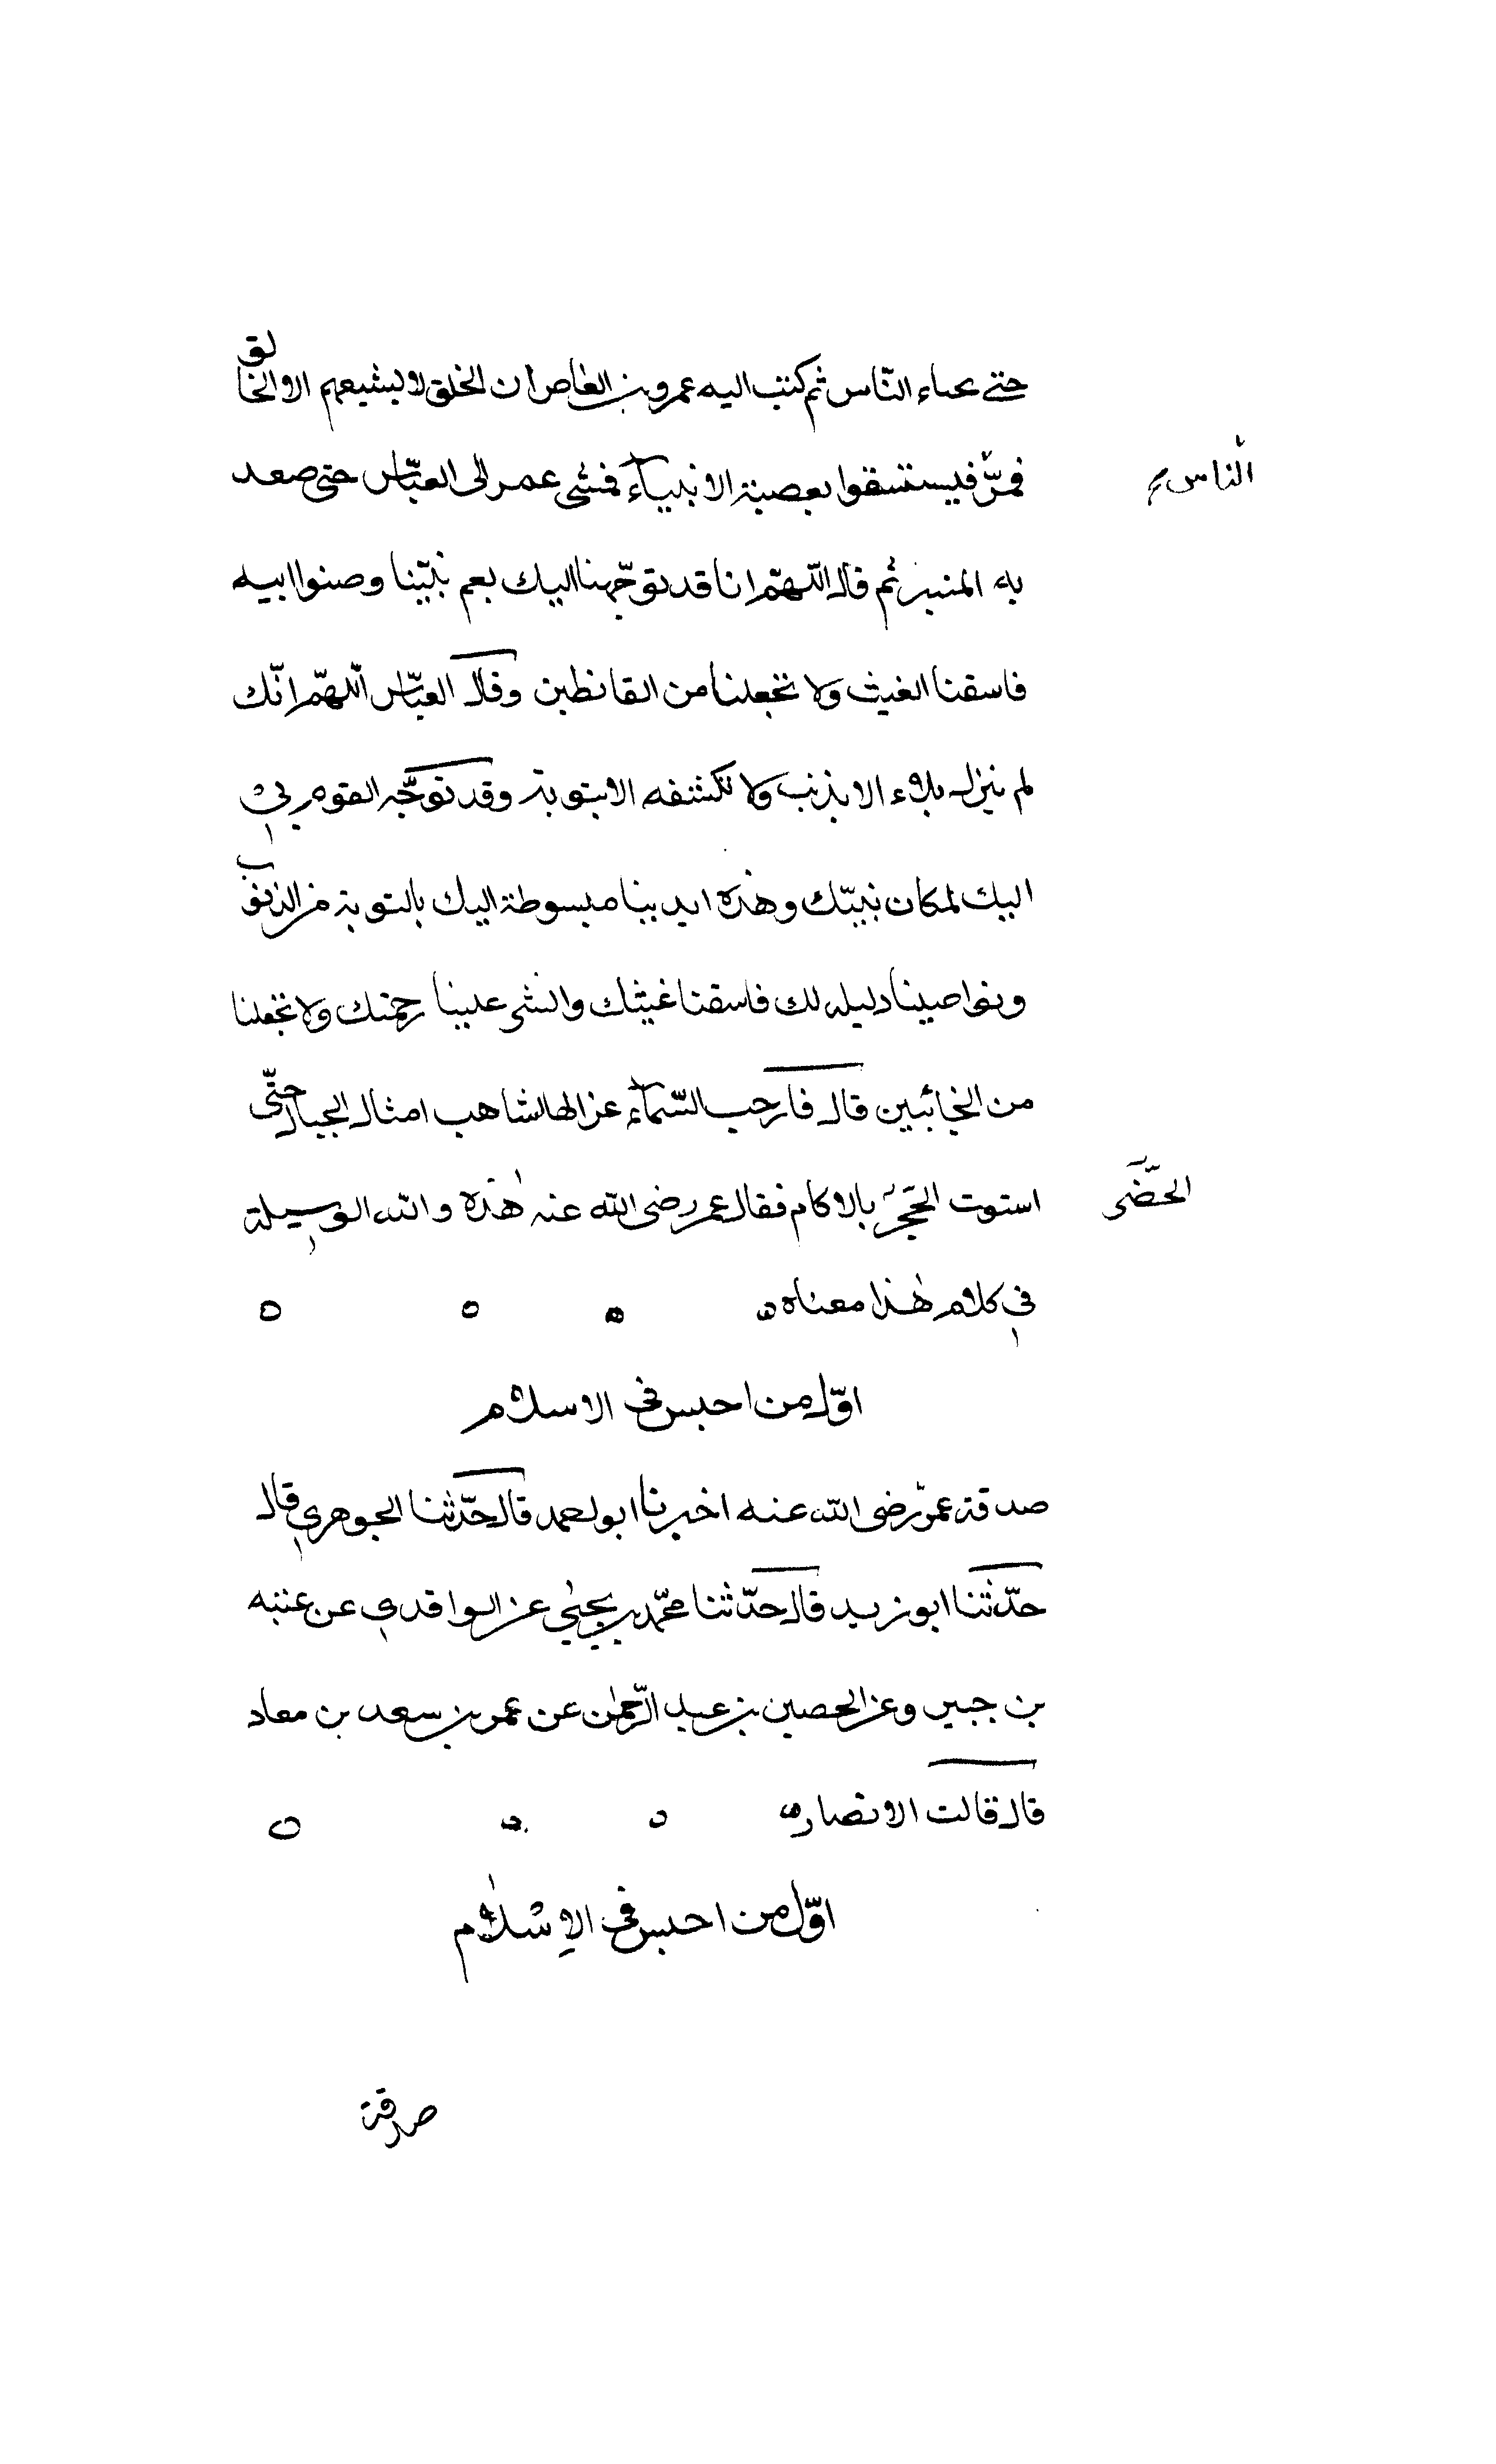 حتى يحياء النّاس ثم كتب اليه عمرو بن العاص ان الخلق لا يشيعهم الا الخالق
فمرّ فيستسقوا بعصبة الانبياء فمشى عمر الى العبّاس حتى صعد
الناس
به المنبر ثم قال اللّهمّ انا قد توجّهنا اليك بعم نبيّنا وصنوا ابيه
فاسقنا الغيث ولا تجعلنا من القانطين وقال العبّاس اللّهمّ انّك
لم ينزل بلاء الا بذنب ولا تكشفه الا بتوبة وقد توجّه القوم بي
اليك لمكان نبيّك وهذه ايدينا مبسوطة اليك بالتوبة من الذنوب
ونواصينا دليله لك فاسقنا غيثك وانشى علينا رحمتك ولا تجعلنا
من الخائبين قال فارحب السّماء عزالها شاهب امثال الجبال حتّى
استوت الحجر بالاكام فقال عمر رضى الله عنه هذه والله الوسيلة
الحضّى
في كلام هذا معناه
اوّل من احبس فى الاسلام
صدقة عمر رضى الله عنه اخبرنا ابو احمد قال حدّثنا الجوهري قال
حدّثنا ابو زيد قال حدّثنا محمّد بن يحيى عن الواقدي عن عتبه
بن جبير وعن الحصين بن عبد الرّحمن عن عمر بن سعد بن معاد
قال قالت الانصار
اوّل من احبس فى الاسلام
صدقة